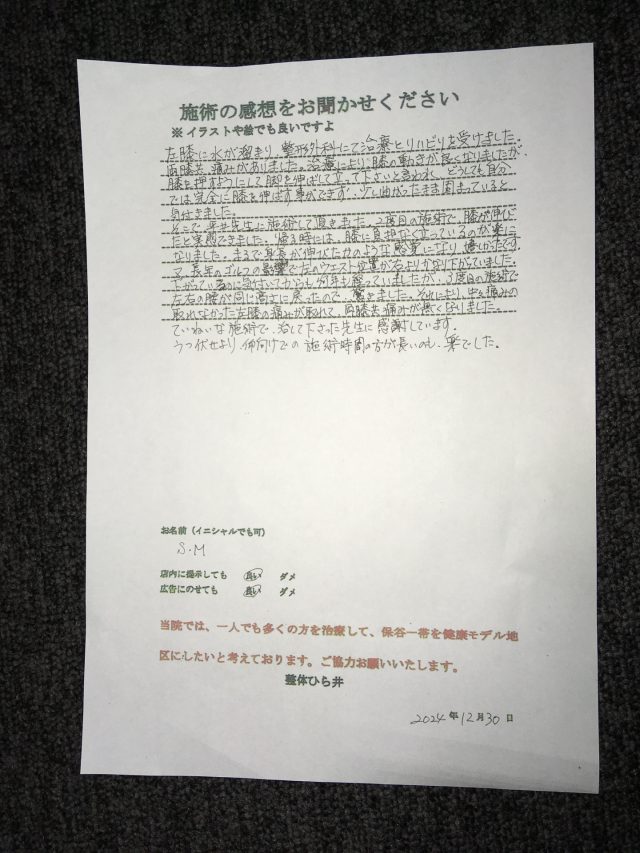 施術の感想をお聞かせください
※イラストや絵でも良いですよ
左膝に水が溜まり、整形外科にて治療とリハビリを受けました。
両膝共、痛みがありました。治療により、膝の動きが良くなりましたが、
膝を押すようにして脚を伸ばして立って下さいと言われ、どうしても自分
では完全に膝を伸ばす事ができず、少し曲がったまま固まっていると
自付きました。
そこで、平井先生に施術して頂きました。2度目の施術で、膝が伸び
たと実感できました。帰る時には、膝に負担なく立っているのが楽に
なりました。まるで身長が伸びたかのような感覚になり、嬉しかったです。
又、長年のゴルフの影響で左のウエスト位置が右よりかなり下がっていました。
下がっているのに気付いてからも何年も経っていましたが、3度目の施術で
左右の腰が同じ高さに戻ったので、驚きました。それにより、中々痛みの
取れなかった左膝の痛みが取れて、両膝共痛みが無くなりました。
ていねいな施術で、治して下さった先生に感謝しています。
うつ伏せより、仰向けでの施術時間の方が長いのも、楽でした。
お名前（イニシャルでも可）
S.M
店内に掲示しても 良い ダメ
広告にのせても 良い ダメ
当院では、一人でも多くの方を治療して、保谷一帯を健康モデル地
区にしたいと考えております。ご協力お願いいたします。
整体ひら井
2024年12月30日